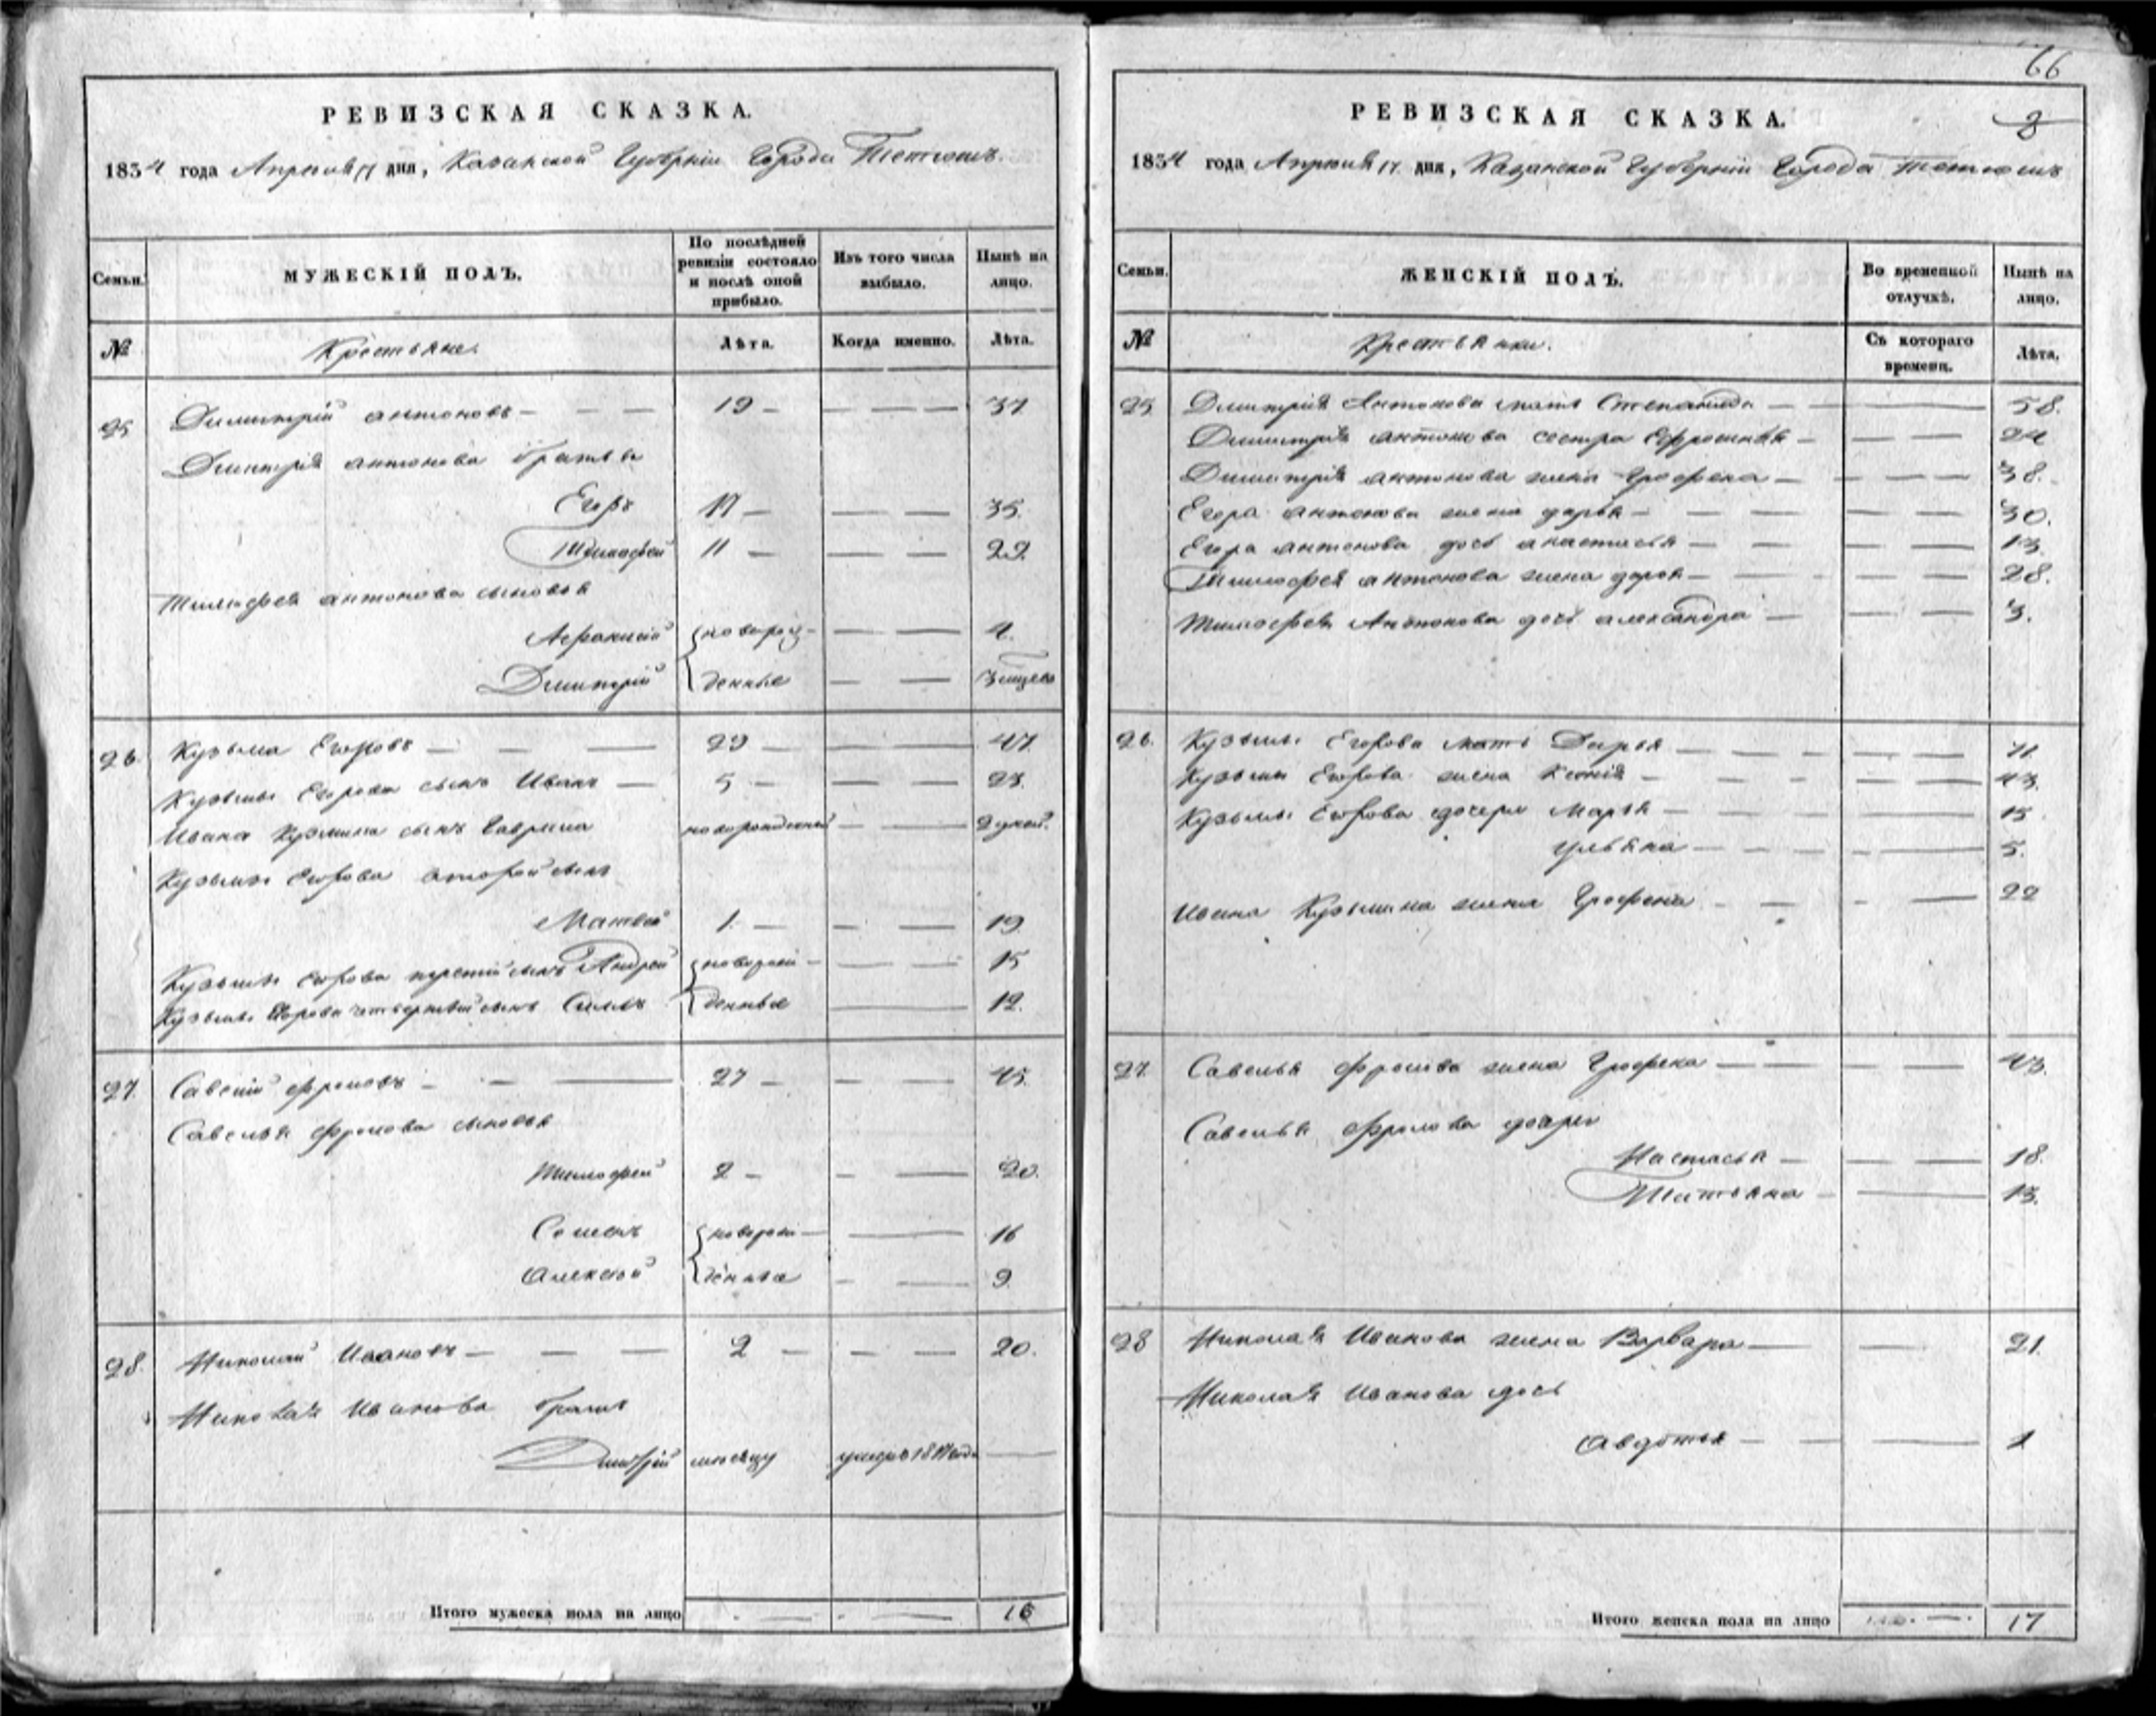 66
РЕВИЗСКАЯ СКАЗКА.
1834 года Апреля 17 дня, Казанской Губерніи Города Тетюшъ.
Семьи.
МУЖЕСКІЙ ПОЛЪ.
По послѣдней ревизіи состояло и послѣ оной прибыло.
Изъ того числа выбыло.
Нынѣ на лицо.
№
Крестьяне.
Лѣта.
Когда именно.
Лѣта.
25 Димитрій Антоновъ — 19 — 37
Дмитрія Антонова братья
Егоръ 17 — 35.
Тимофей 11 — 29
Тимофея Антонова сыновья
новорож- 4.
Дмитрій денные — 3 мѣсеца
26. Кузьма Егоровъ — 29 — 47
Кузьмы Егорова сынъ Иванъ — 5 — 23.
Ивана Кузмина сынъ Гаврила новорожденный — 2 дней.
Кузьмы Егорова второй сынъ
Матвей 1. — 19
Кузьмы Егорова третій сынъ Андрей новорож- 15
Кузьмы Егорова четвертый сынъ денные — 12.
27. Савелій Фроловъ — 27 — 45.
Савелья Фролова сыновья
Тимофей 2 — 20.
Семенъ новорож- 16
Алексей денные — 9.
28. Николай Ивановъ — 2 — 20.
Николая Иванова братъ
Дмитрій месяцу умеръ 18 года —
Итого мужеска пола на лицо 16
РЕВИЗСКАЯ СКАЗКА.
8
1834 года Апреля 17 дня, Казанской Губерніи Города Тетюшъ
Семьи.
ЖЕНСКІЙ ПОЛЪ.
Во временной отлучкѣ.
Нынѣ на лицо.
№
Крестьянки.
Съ котораго времени.
Лѣта.
25. Дмитрія Антонова мать Степанида — 58.
Димитрія Антонова сестра Ефросинья — 24
Димитрія Антонова жена Грофена — 38.
Егора Антонова жена Дарья — 30.
Егора Антонова дочь Анастасья — 13.
Тимофея Антонова жена Дарья — 28.
Тимофея Антонова дочь Александра — 3.
26. Кузьмы Егорова мать Дарья — 71
Кузьмы Егорова жена Ксенія — 43.
Кузьмы Егорова дочери Марья — 15
Ульяна — 5.
Ивана Кузьмина жена Грофена — 22
27. Савелья Фролова жена Грофена — 43.
Савелья Фролова дочери
Настасья — 18.
Татьяна — 13.
28 Николая Иванова жена Варвара — 21.
Николая Иванова дочь
Авдотья — 1
Итого женска пола на лицо 17